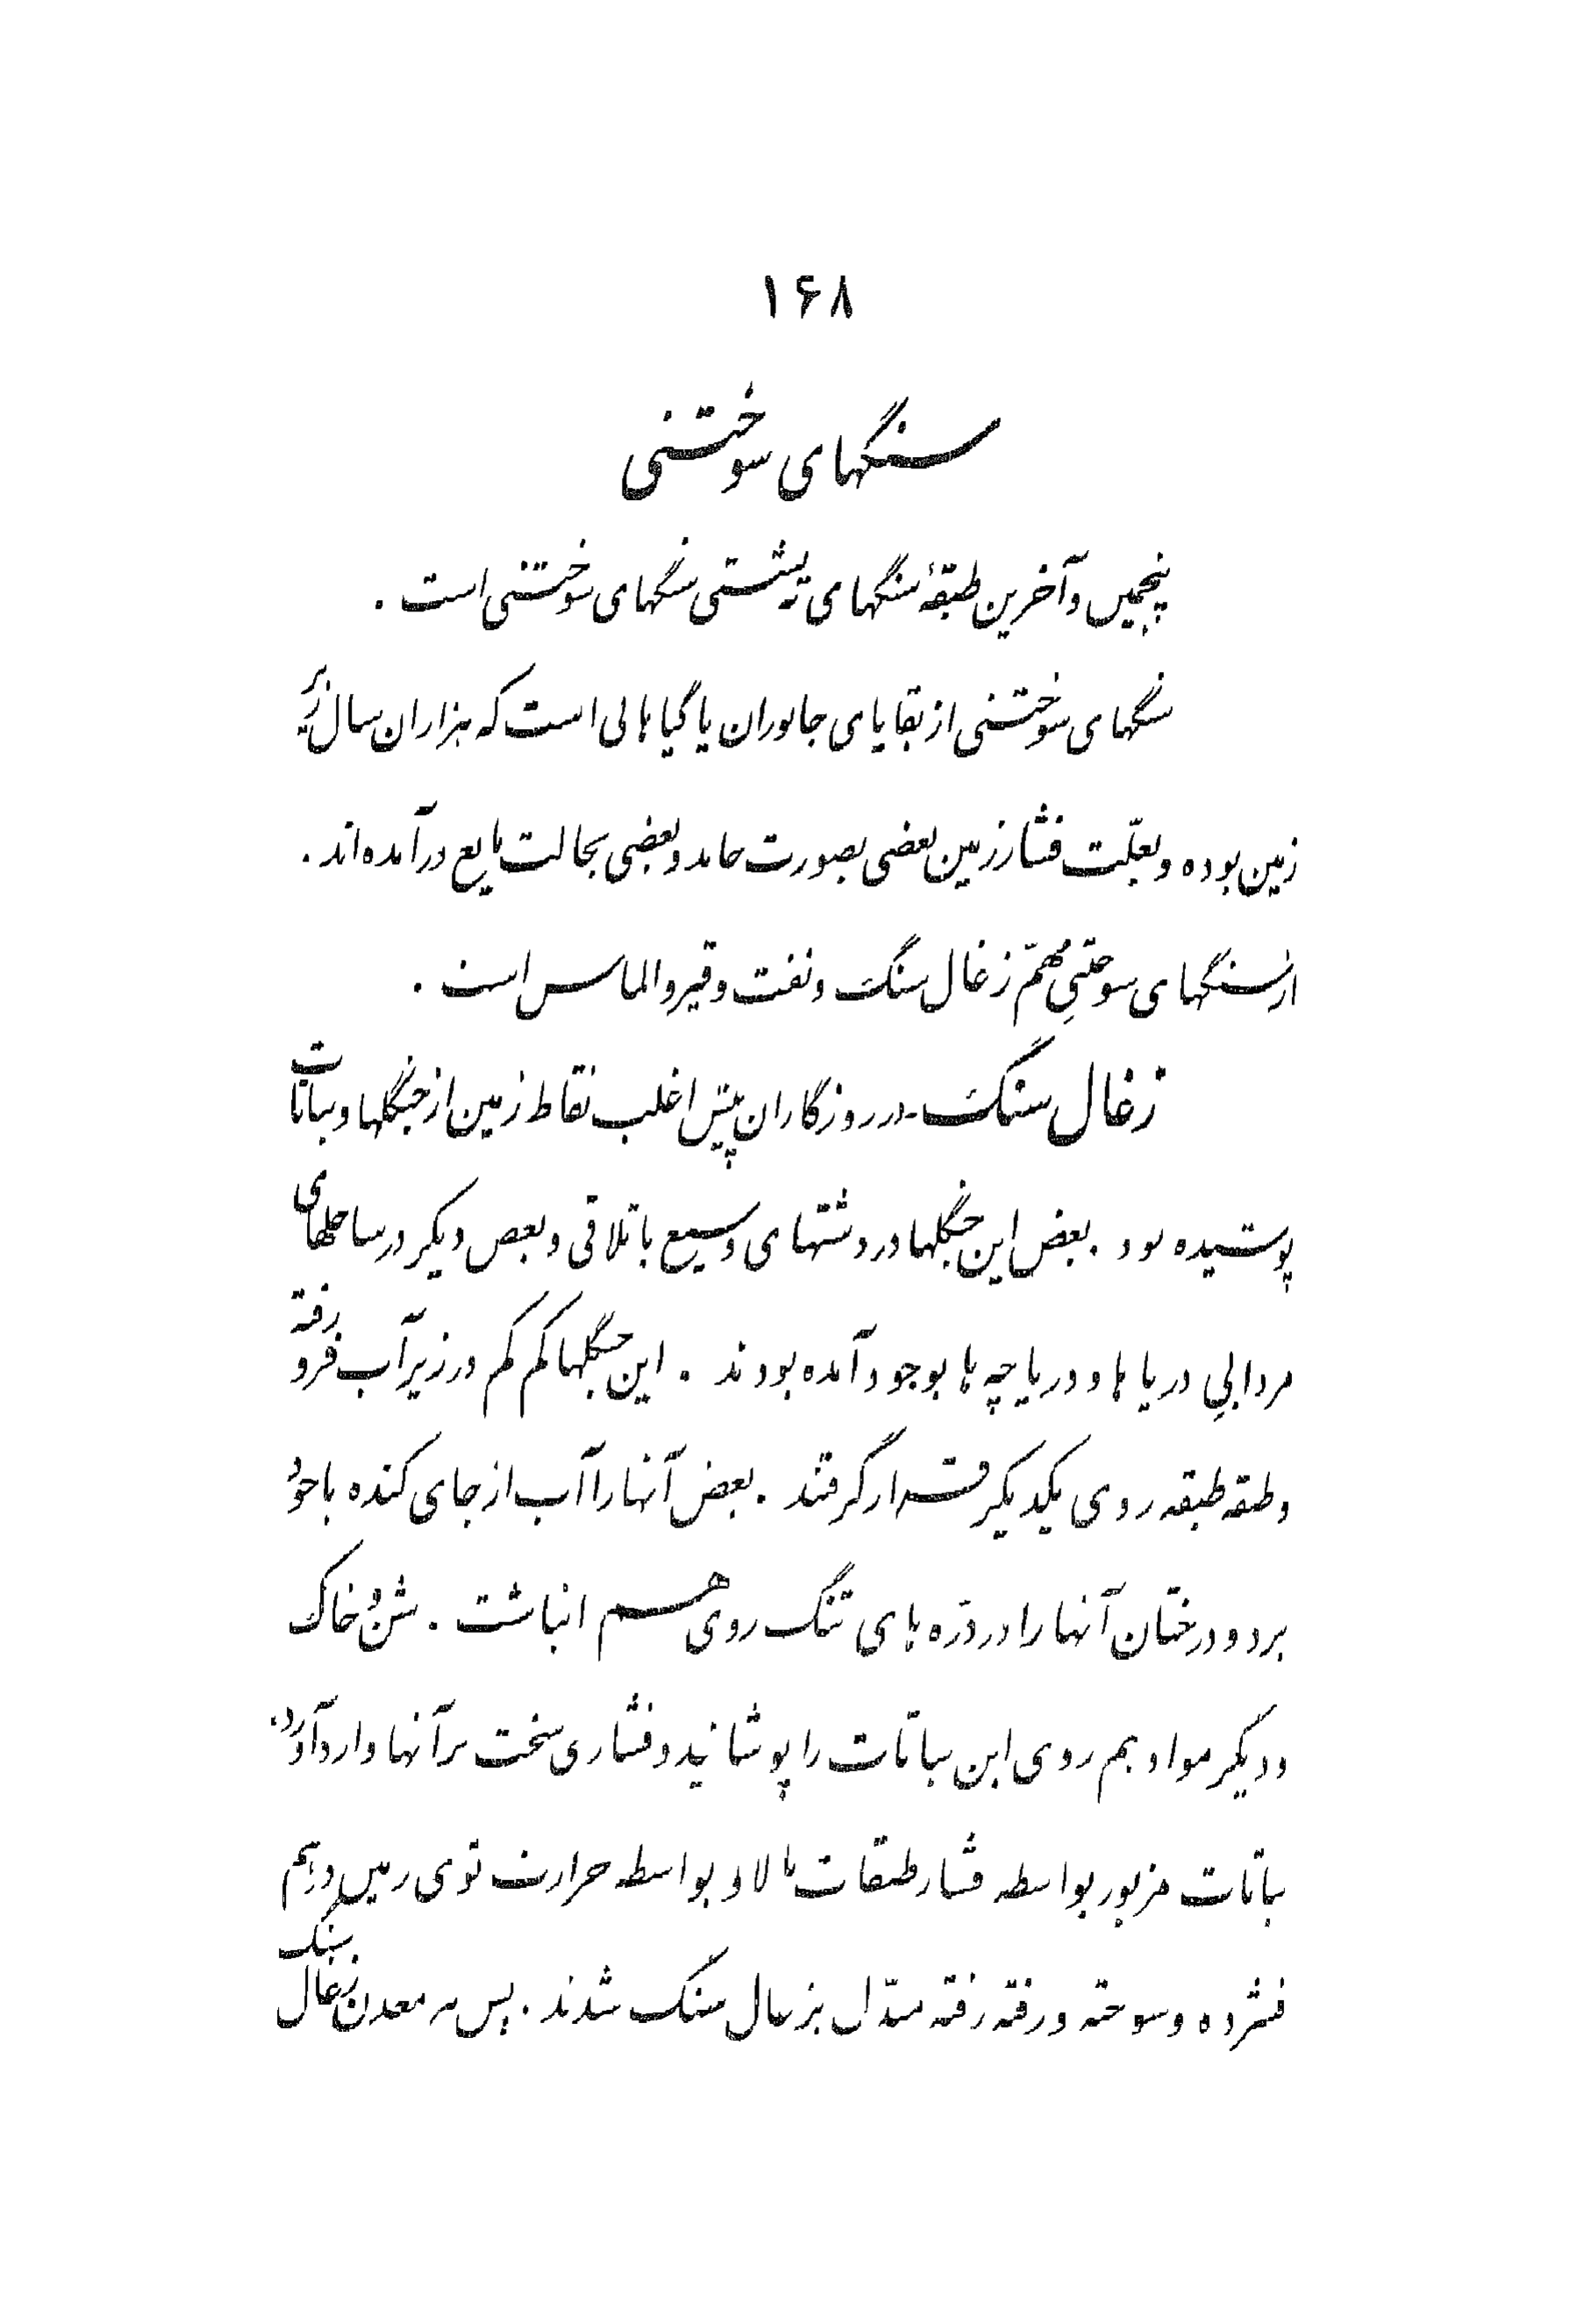 ۱۶۸
سنگهای سوختنی
پنجمین و آخرین طبقهٔ سنگهای ته‌نشستی سنگهای سوختنی است .
سنگهای سوختنی از بقایای جانوران یا گیاهانی است که هزاران سال زیر
زمین بوده و بعلّت فشار زمین بعضی بصورت جامد و بعضی بحالت مایع درآمده‌اند .
از سنگهای سوختنیِ مُهمّ زغال سنگ و نفت و قیر و الماس است .
زغال سنگ - در روزگاران پیش اغلب نقاط زمین از جنگلها و نباتات
پوشیده بود . بعض این جنگلها در دشتهای وسیع باتلاقی و بعض دیگر در ساحلهای
مردابیِ دریاها و دریاچه‌ها بوجود آمده بودند . این جنگلها کم کم در زیر آب فرو رفته
و طبقه طبقه روی یکدیگر قرار گرفتند . بعض آنها را آب از جای کنده با خود
برد و درختان آنها را در درّه‌های تنگ روی هم انباشت . شن و خاک
و دیگر مواد هم روی این نباتات را پوشانید و فشاری سخت بر آنها وارد آورد ،
نباتات مزبور بواسطه فشار طبقات بالا و بواسطه حرارت توی زمین درهم
فشرده و سوخته و رفته رفته مبدّل بزغال سنگ شدند . پس هر معدن زغال سنگ